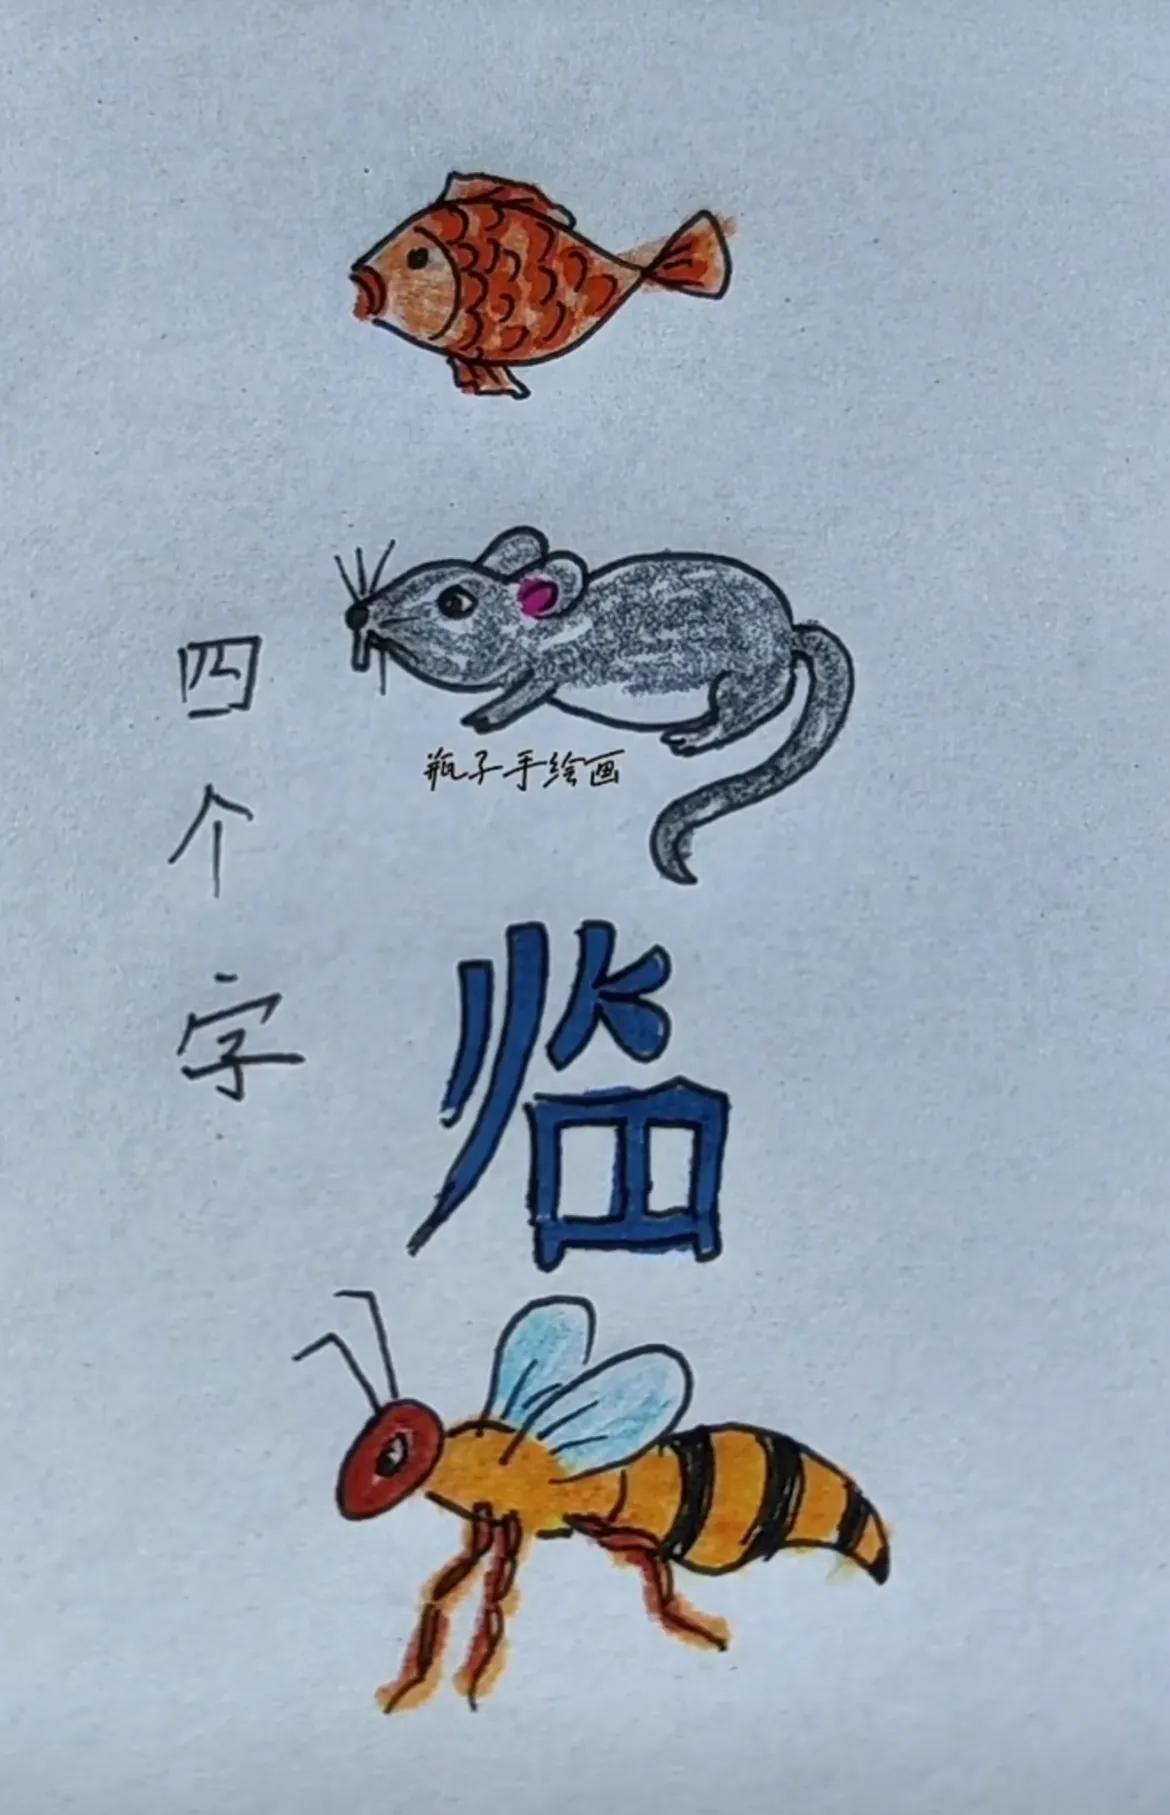 四个字
瓶子手绘画
临